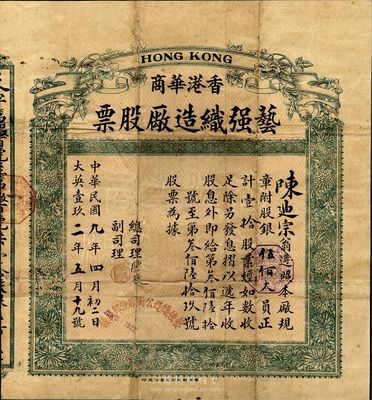 HONG KONG
香港華商
藝强織造廠股票
陳廸宗翁遵照本廠規
章附股銀伍佰大員正
計壹拾股業經如數收
足除另發息摺以逓年收
股息外即給第叁佰陸拾
號至第叁佰陸拾玖號
股票為據
總司理
副司理
中華民國九年四月初二日
大英壹玖二年五月十九號